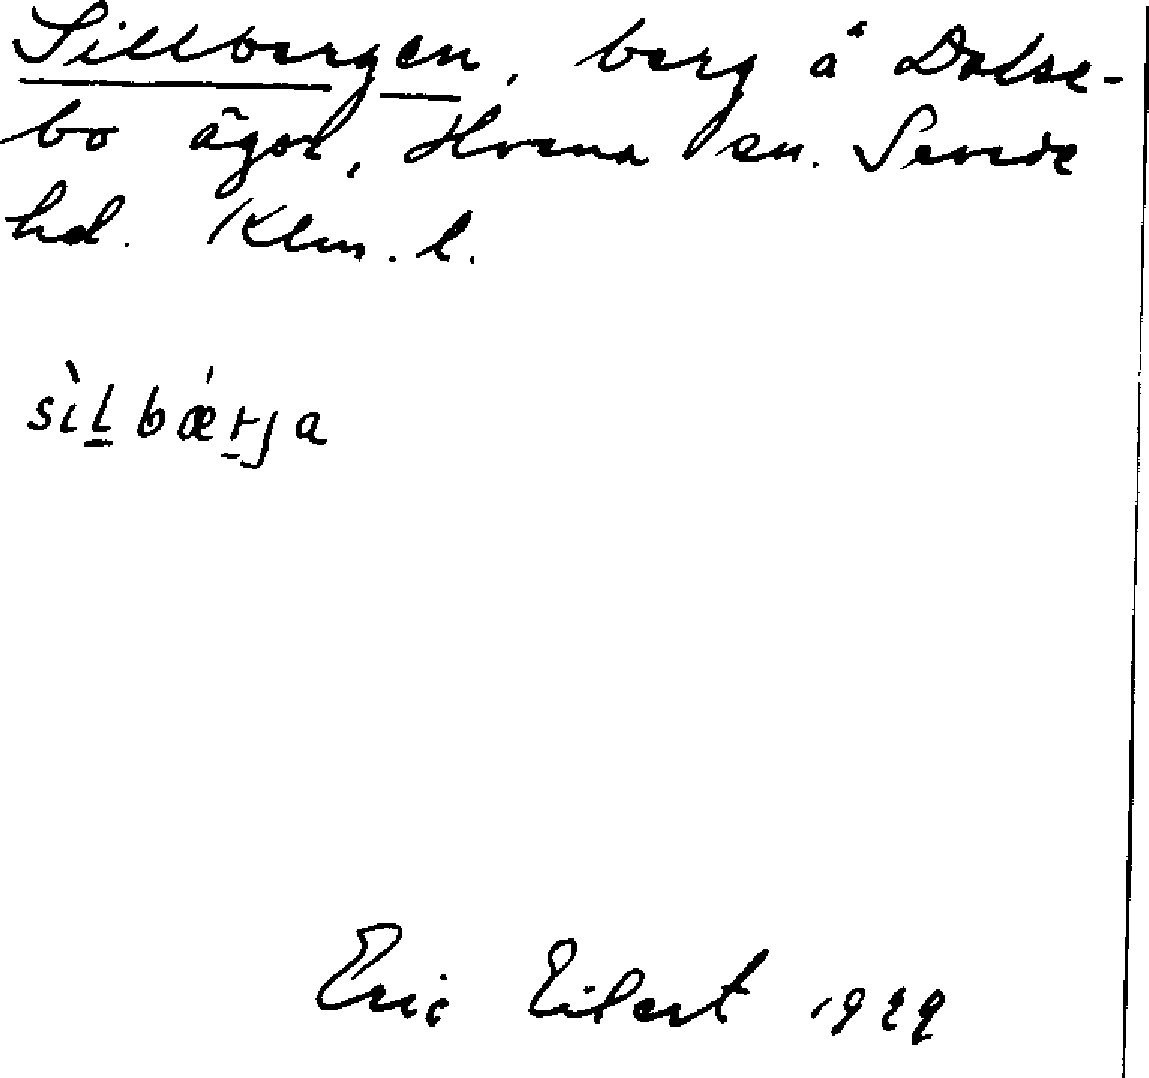 Sillbergen, berg å Dalse-
bo ägor, Hvena sn. Sevede
hd. Klm. l.
sìl̲bǽr̲ja
Eric Eilert 1929